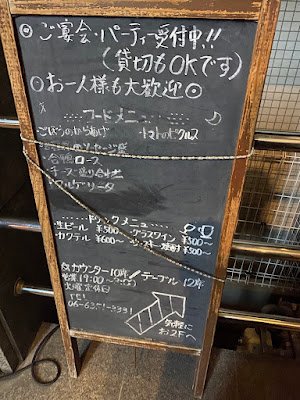 ◎ ご宴会・パーティー受付中!!
(貸切もOKです)
◎お一人様も大歓迎◎
フードメニュー
ごぼうのからあげ トマトのピクルス
ソーセージ
・合鴨ロース
・チーズ盛り合わせ
・マルゲリータ
ドリンクメニュー
生ビール ¥500〜 グラスワイン ¥500〜
カクテル ¥600〜 ウィスキー・焼酎 ¥500〜
カウンター10席/テーブル 12席
営業19:00〜
火曜定休日
TEL
気軽に
お2Fへ